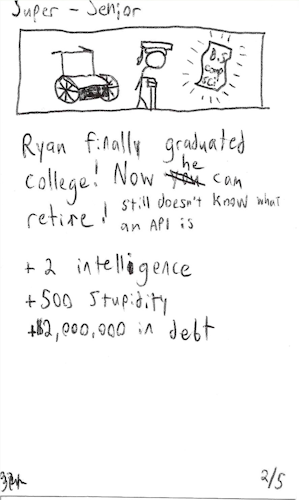 Super - Senior
B.S
comp
sci
Ryan finally graduated
college! Now he can
retire! still doesn't know what
an API is
+ 2 intelligence
+500 stupidity
+$2,000,000 in debt
2/5